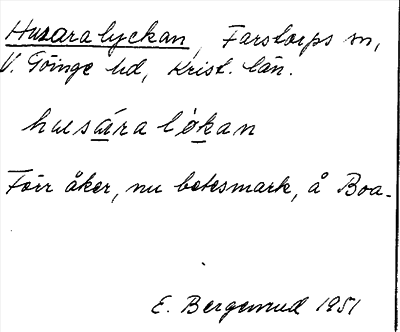 Husaralyckan, Farstorps sn,
V. Göinge hd, Krist. län.
husára lỳkan
Förr åker, nu betesmark, å Boa.
E. Bergerud 1951